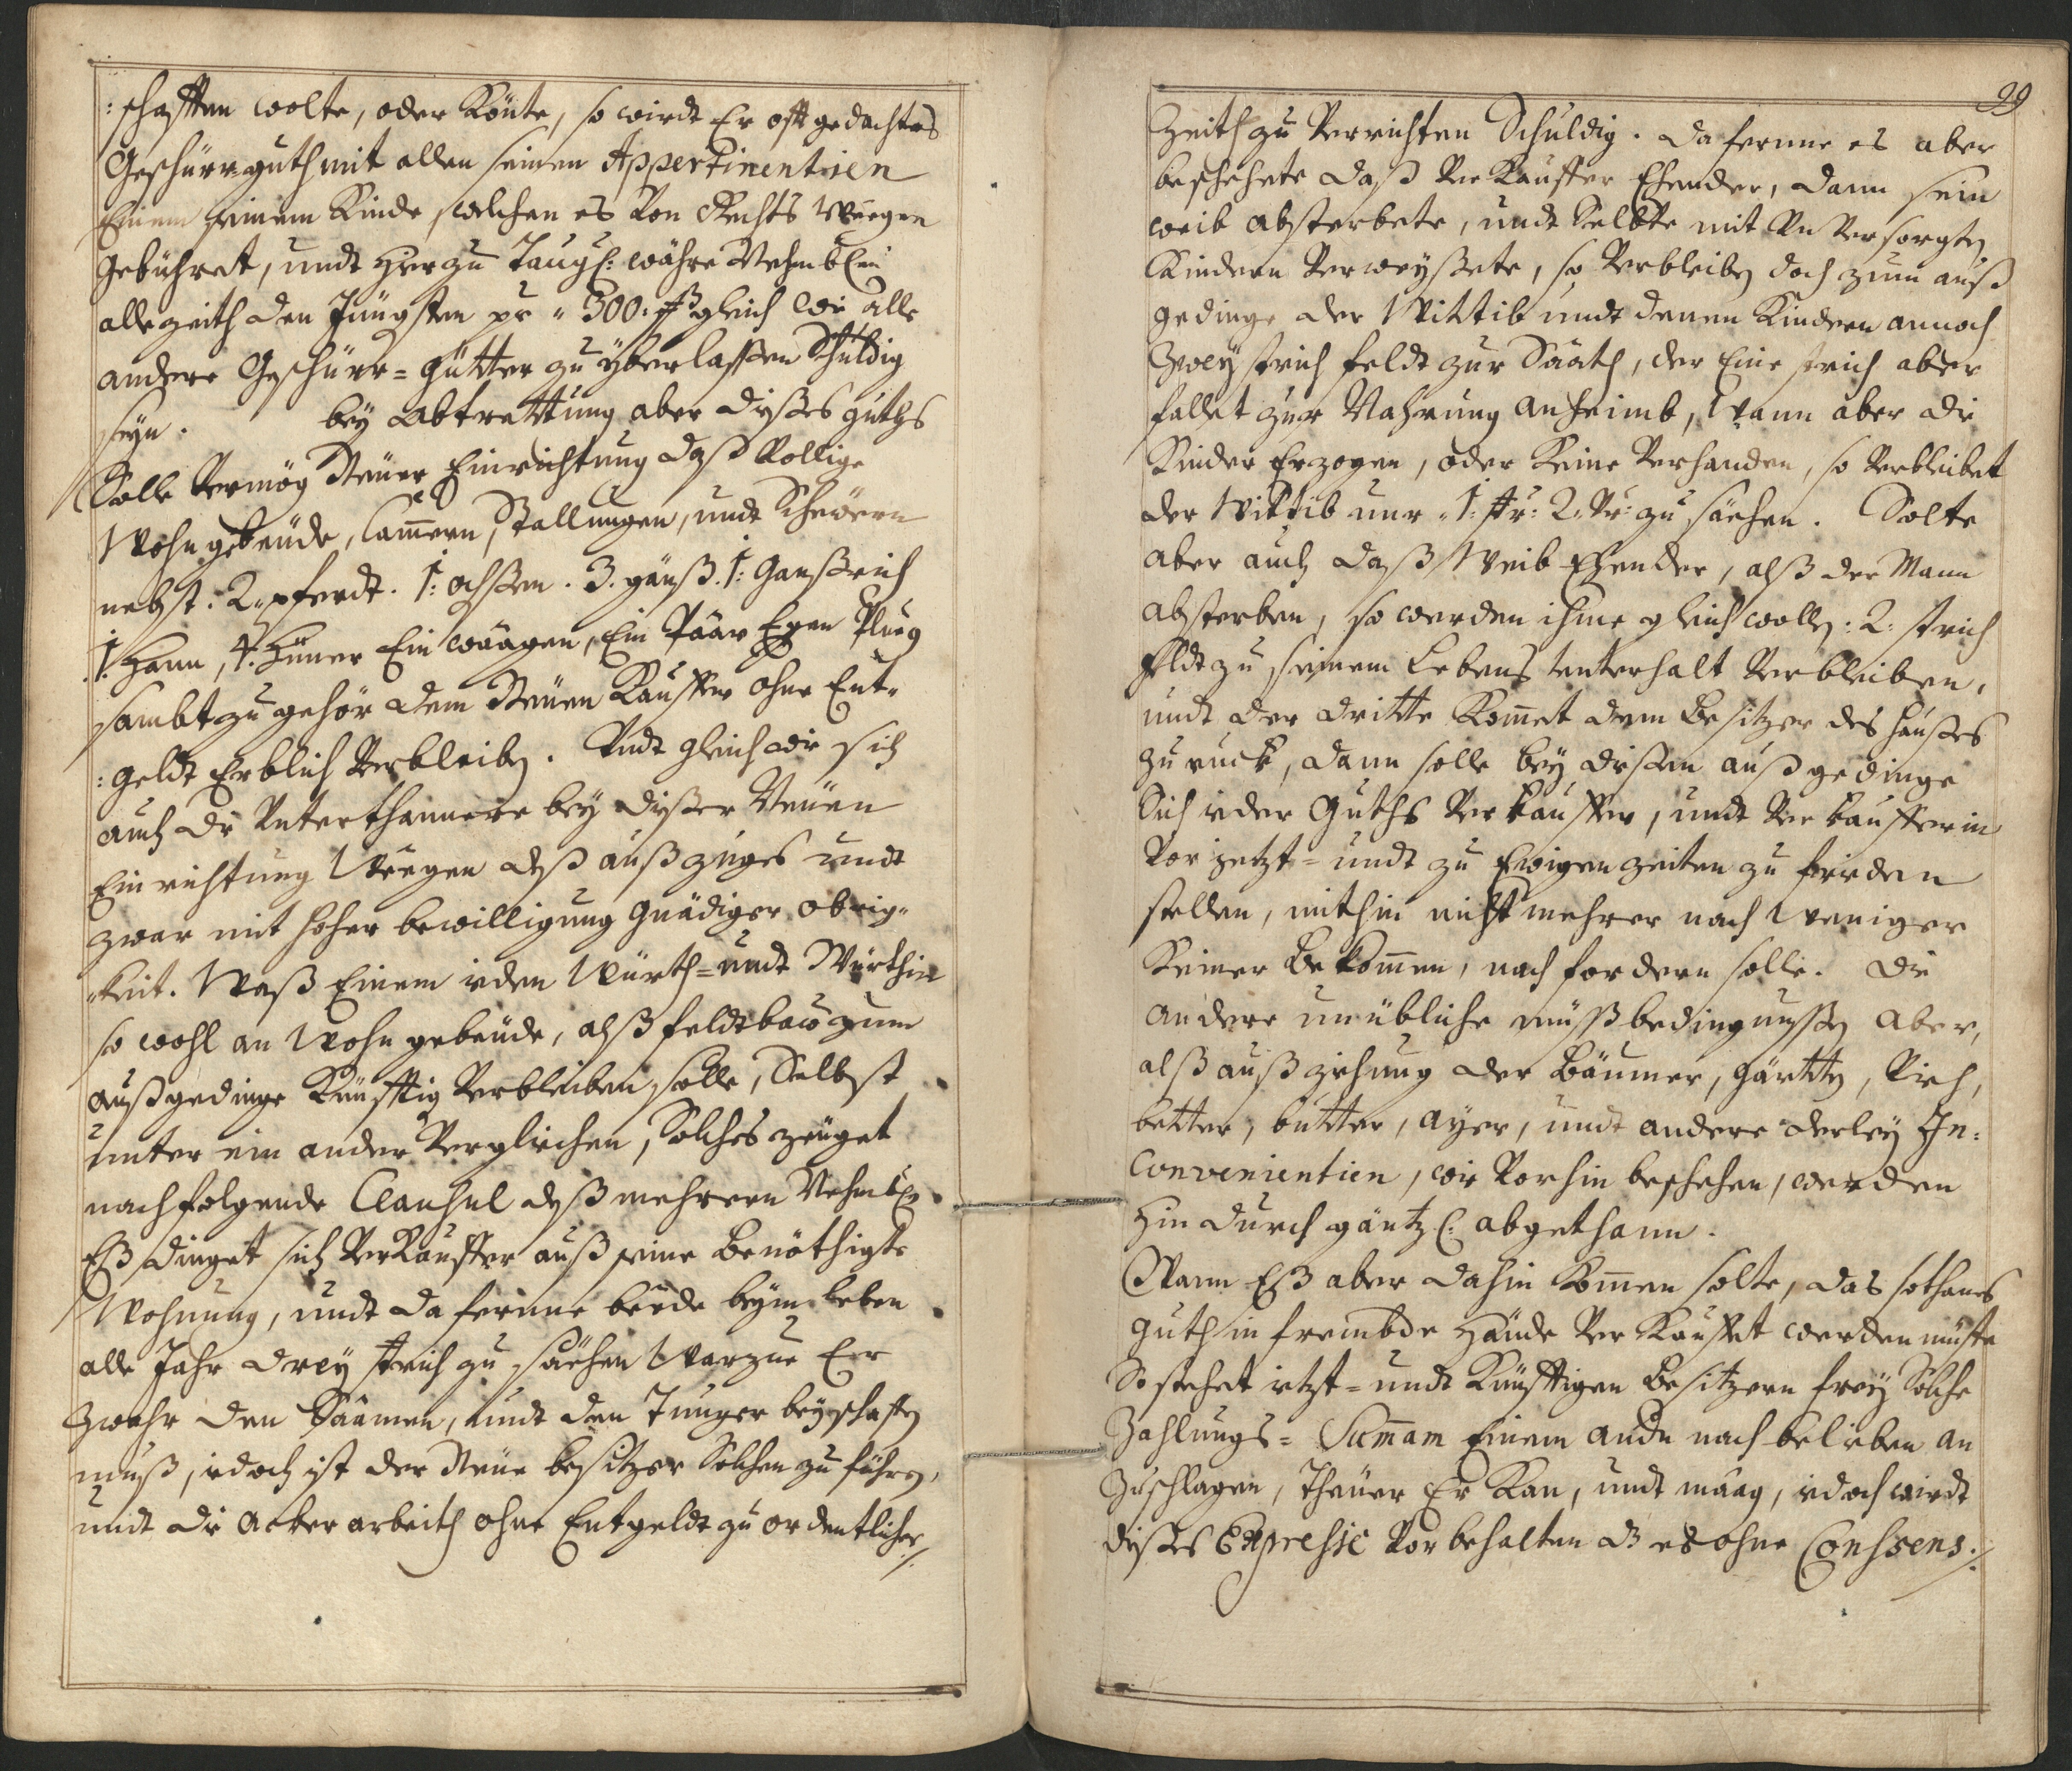 :schafften wolte, oder Könte, so wirdt Er offt gedachtes
Geschürrguth mit allen seinen Appertinentien
Einem seinem Kinde, welchen es Von Rechts Weegen
Gebühret, undt Hierzu Taugl: währe Nehmbl:
allezeith den Jüngsten pr " 300. fß gleich wie alle
andere Geschürr= Gütter zu yberlassen Schuldig
seyn. bey abtrettung aber dyßes guths
Solle Vermög Neuer Einrichtung daß Vollige
Wohngebeüde, Cam̅ern, Stallungen, undt Scheüern
nebst. 2. pferdt. 1: ochßen. 3. gänß. 1: Ganßrich
1. Hann, 4. Hüner Ein wäagen, Ein Päar Egen Plueg
sambt zugehör dem Neüen Kauffer ohne Ent"
:geldt Erblich Verbleiben. Undt gleich wie sich
auch die Unterthannere bey dißer Neüen
Einrichtung Weegen deß außzuges undt
zwar mit hoher bewilligung Gnädiger obrig"
"keit. Waß Einem ieden Würth= undt Würthin
so wohl an Wohngebeüde, alß feldtbau zum
außgedinge Künfftig Verbleiben solle, Selbst
unter ein ander Verglichen, Solches zeüget
nachfolgende Clausul deß mehreren Nehmbl:
Eß dinget sich Verkäuffer auß seine Benöthigte
Wohnung, undt daferne beede beym leben
alle Jahr drey strich zu säehen Warzue Er
zwahr den Saamen, undt den Tunger beyschaffen
muß, iedoch ist der Neüe besitzer Solchen zu führen,
undt die Acker arbeith ohne Entgeldt zu ordentlicher ./.
29
Zeith zu Verrichten Schuldig. daferne es aber
beschehete daß Verkauffer Ehender, dann sein
weib absterbete, undt Selbte mit Unversorgten
Kindern Verwayßete, so Verbleiben doch zum auß
gedinge der Wittib undt denen Kindern annoch
Zwey strich feldt zur Säath, der Eine strich aber
fallet zur Nahrung anheimb, Wann aber die
Kinder Erzogen, oder Keine Verhanden, so Verbleibet
der Wittib nur " 1: str: 2. Vr: zu säehen. Solte
aber auch daß Weib Ehender, alß der Mann
absterben, so werden ihme gleichwollen: 2: strich
Feldt zu seinem Lebens unterhalt Verbleiben,
undt der dritte Kom̅et dem Besitzer des haußes
zu ruck, dann solle bey dißem außgedinge
Sich ieder Guths Verkauffer, undt Verkaufferin
Vor jetzt= undt zu Ewigen zeiten zu friden
stellen, mithin nicht mehrer noch Weniger
Keiner Bekom̅en, noch fordern solle. die
andere unübliche außbedingnußen aber,
alß außziehung der Bäumer, gärtten, Vieh,
better, butter, ayer, undt andere derley In=
Convenientien, wie Vorhin beschehen, werden
Hindurch gäntzl: abgethann.
Wann Eß aber dahin Kom̅en solte, das sothanes
Guth in frembde Hände Verkauffet werden müste
So stehet ietzt= undt Künfftigen Besitzern frey Solche
Zahlungs= Sum̅am Einem andn nach belieben an
Zuschlagen, Theüer Er Kan, undt mäag, iedoch wirdt
dißes Expresse Vorbehalten dß es ohne Conssens./.